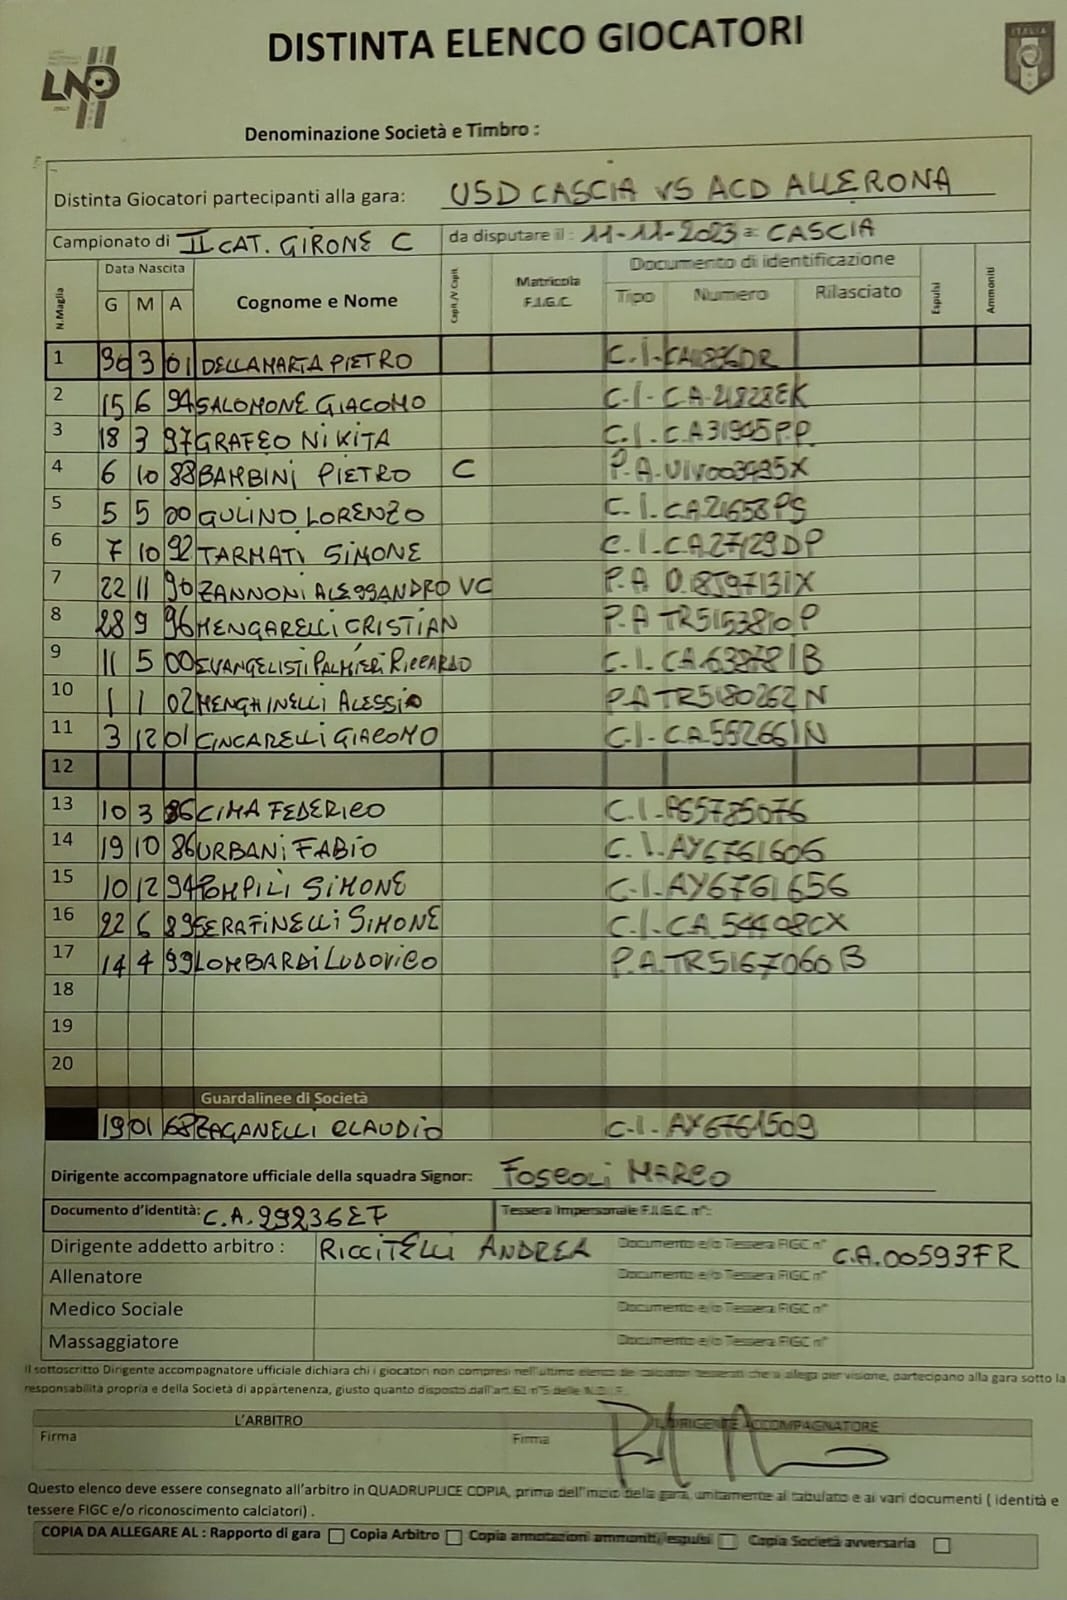 DISTINTA ELENCO GIOCATORI
LND
ITALIA
Denominazione Società e Timbro :
Distinta Giocatori partecipanti alla gara: USD CASCIA VS ACD ALLERONA
Campionato di II CAT. GIRONE C da disputare il : 11-11-2023 a: CASCIA
N.Maglia Data Nascita G M A Cognome e Nome Capit./V Capit. Matricola F.I.G.C. Documento di identificazione Tipo Numero Rilasciato Espulsi Ammoniti
1 30 3 01 DELLAMARIA PIETRO C.I.
2 15 6 94 SALOMONE GIACOMO C.I. CA21828EK
3 18 3 97 GRAFEO NIKITA C.I. CA31945PP
4 6 10 88 BAMBINI PIETRO C P.A.
5 5 5 00 GULINO LORENZO C.I. CA21658PS
6 7 10 92 TARMATI SIMONE C.I. CA27129DP
7 22 11 90 ZANNONI ALESSANDRO VC P.A
8 28 9 96 MENGARELLI CRISTIAN P.A TR5153810P
9 11 5 00 EVANGELISTI PALMIERI RICCARDO C.I. CA.63878IB
10 1 1 02 MENGHINELLI ALESSIO P.A TR5180262N
11 3 12 01 CINCARELLI GIACOMO C.I. CA.55266IN
12
13 10 3 86 CIMA FEDERICO C.I.
14 19 10 86 URBANI FABIO C.I. AY6761606
15 10 12 94 POMPILI SIMONE C.I. AY6761656
16 22 6 89 SERAFINELLI SIMONE C.I. CA.54408CX
17 14 4 99 LOMBARDI LUDOVICO P.A. TR5167060B
18
19
20
Guardalinee di Società
19 01 68 ZAGANELLI CLAUDIO C.I. AY6761509
Dirigente accompagnatore ufficiale della squadra Signor: FOSCOLI MARCO
Documento d'identità: C.A.29236EF Tessera Impersonale F.I.G.C. n°:
Dirigente addetto arbitro : RICCITELLI ANDREA Documento e/o Tessera FIGC n° C.A.00593FR
Allenatore Documento e/o Tessera FIGC n°
Medico Sociale Documento e/o Tessera FIGC n°
Massaggiatore Documento e/o Tessera FIGC n°
Il sottoscritto Dirigente accompagnatore ufficiale dichiara chi i giocatori non compresi nell'ultimo elenco dei calciatori tesserati che si allega per visione, partecipano alla gara sotto la
responsabilità propria e della Società di appartenenza, giusto quanto disposto dall'art.61 n°5 delle N.O.I.F.
L'ARBITRO IL DIRIGENTE ACCOMPAGNATORE
Firma Firma
Questo elenco deve essere consegnato all'arbitro in QUADRUPLICE COPIA, prima dell'inizio della gara, unitamente al tabulato e ai vari documenti ( identità e
tessere FIGC e/o riconoscimento calciatori) .
COPIA DA ALLEGARE AL : Rapporto di gara Copia Arbitro Copia annotazioni ammoniti/espulsi Copia Società avversaria